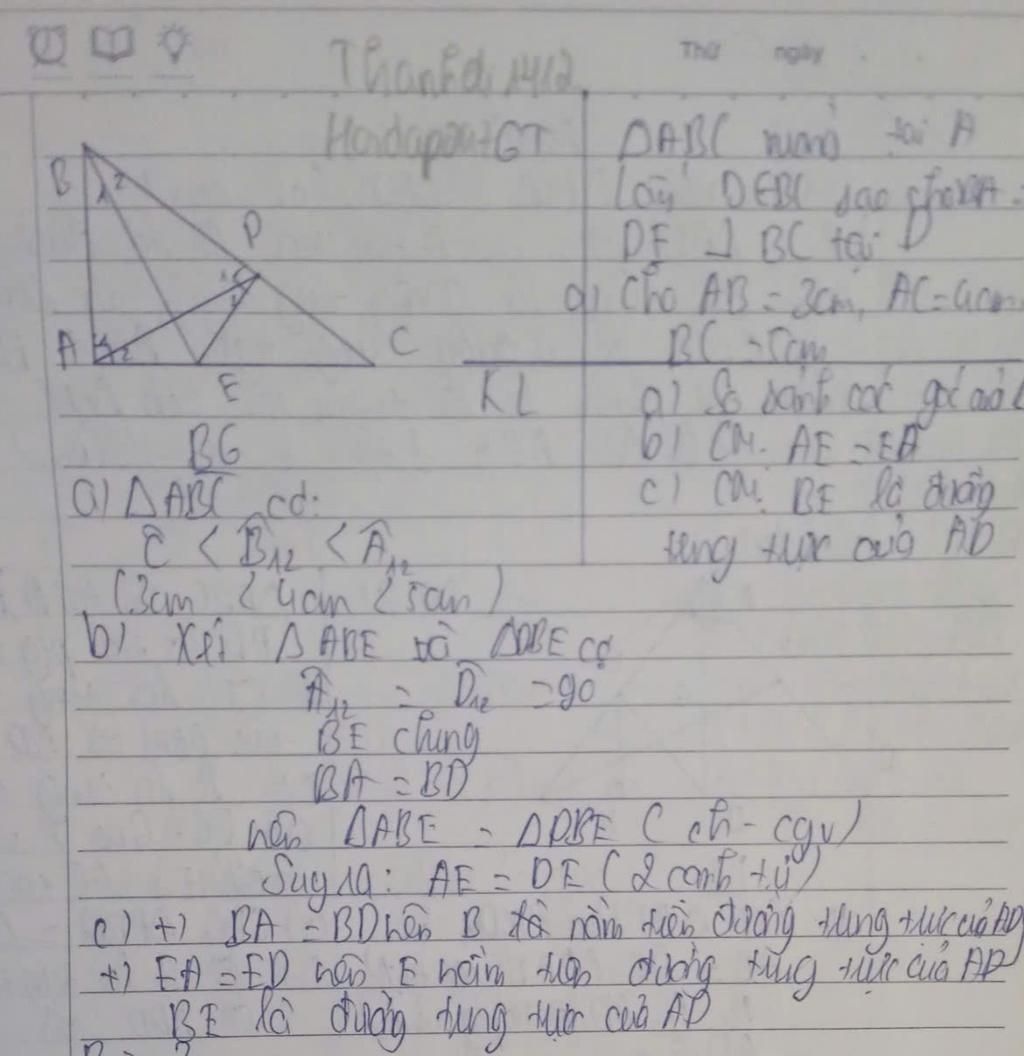 Thứ ngày
Thanhdi1412
Hoidap247 GT
ΔABC vuông tại A
Lấy D∈BC sao cho BA =
DE ⊥ BC tại D
a) Cho AB = 3cm, AC = 4cm
BC = 5cm
B 1 2
D
A 1 2
E
C
KL
a) So sánh các góc của
b) CM: AE = EA
c) CM: BE là đường
trung trực của AD
BG
a) ΔABC có:
Ĉ < B̂12 < Â12
(3cm < 4cm < 5cm)
b) Xét ΔABE và ΔDBE có
Â12 = D̂12 = 90
BE chung
BA = BD
nên ΔABE = ΔDBE (ch - cgv)
Suy ra: AE = DE (2 cạnh t.ứ)
c) +) BA = BD nên B nằm trên đường trung trực của AD
+) EA = ED nên E nằm trên đường trung trực của AD
BE là đường trung trực của AD